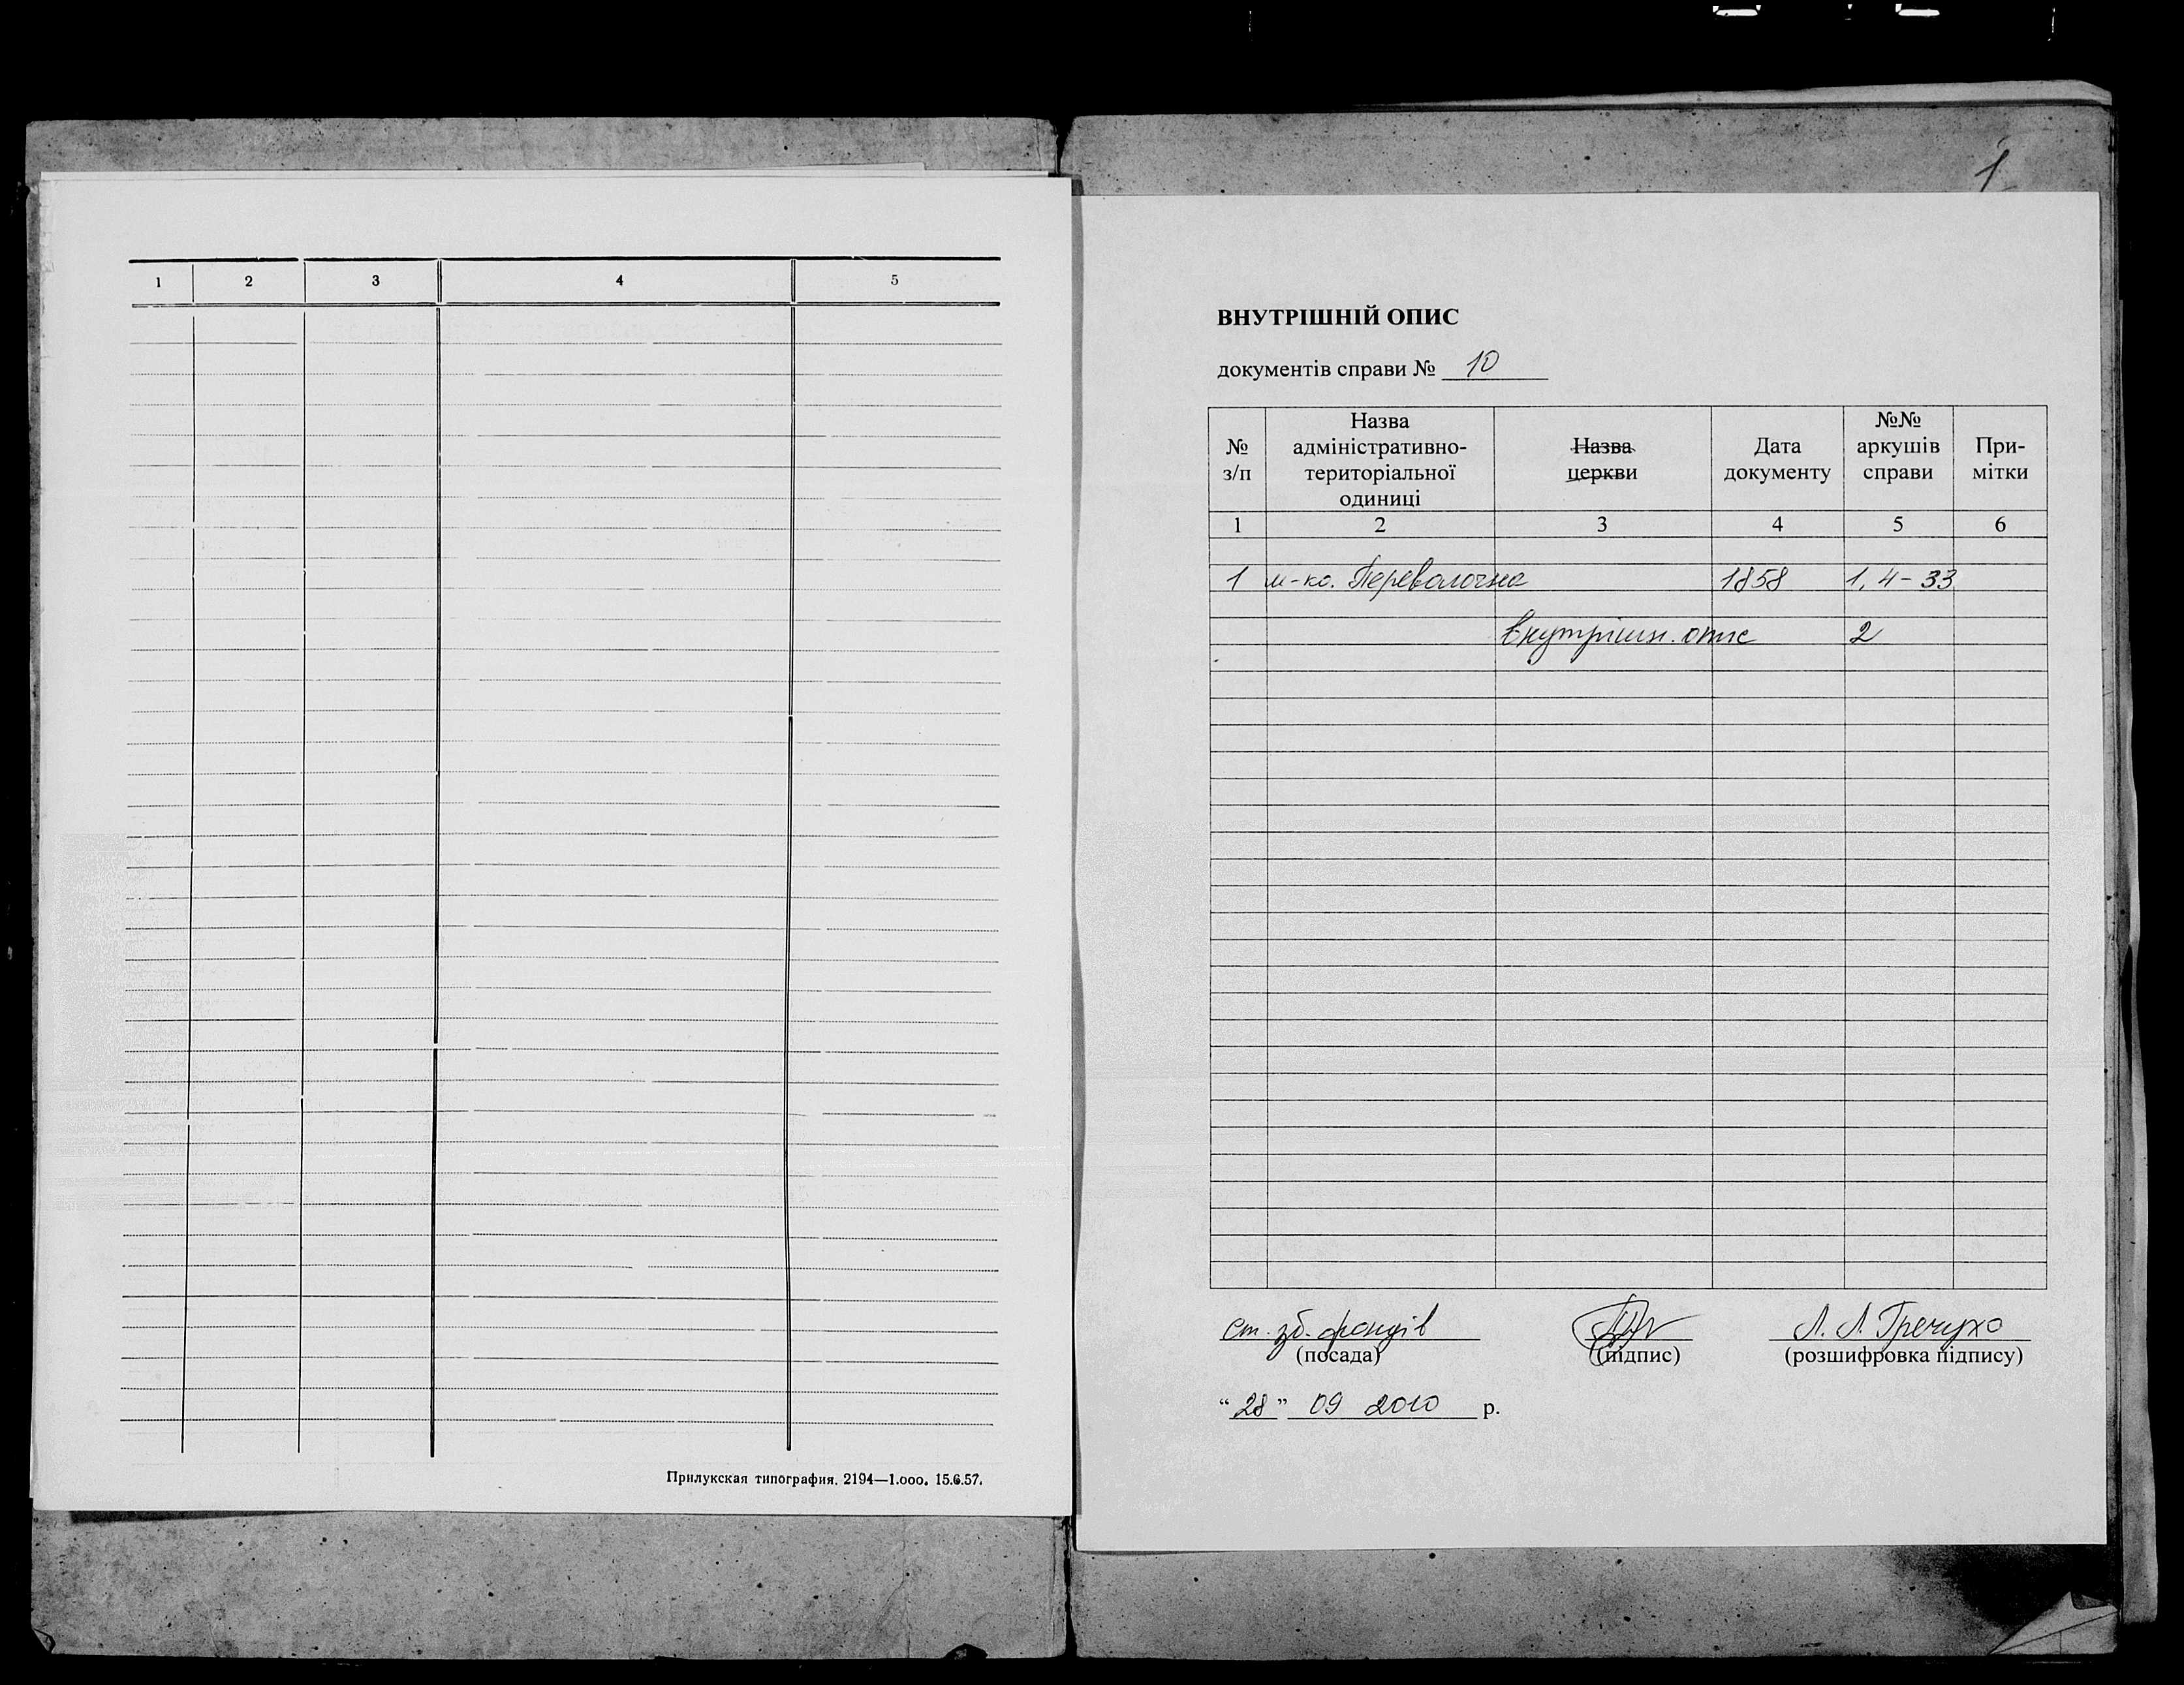 1 2 3 4 5
Прилукская типография. 2194—1.000. 15.6.57.
1
ВНУТРІШНІЙ ОПИС
документів справи № 10
№ з/п
Назва адміністративно-територіальної одиниці
Назва церкви
Дата документу
№№ аркушів справи
При-мітки
1 2 3 4 5 6
1 м-ко. Переволочна 1858 1, 4-33
внутрішн. опис 2
ст. зб. фондів
Л. Л. Гречухо
(посада) (підпис) (розшифровка підпису)
“28” 09 2010 р.